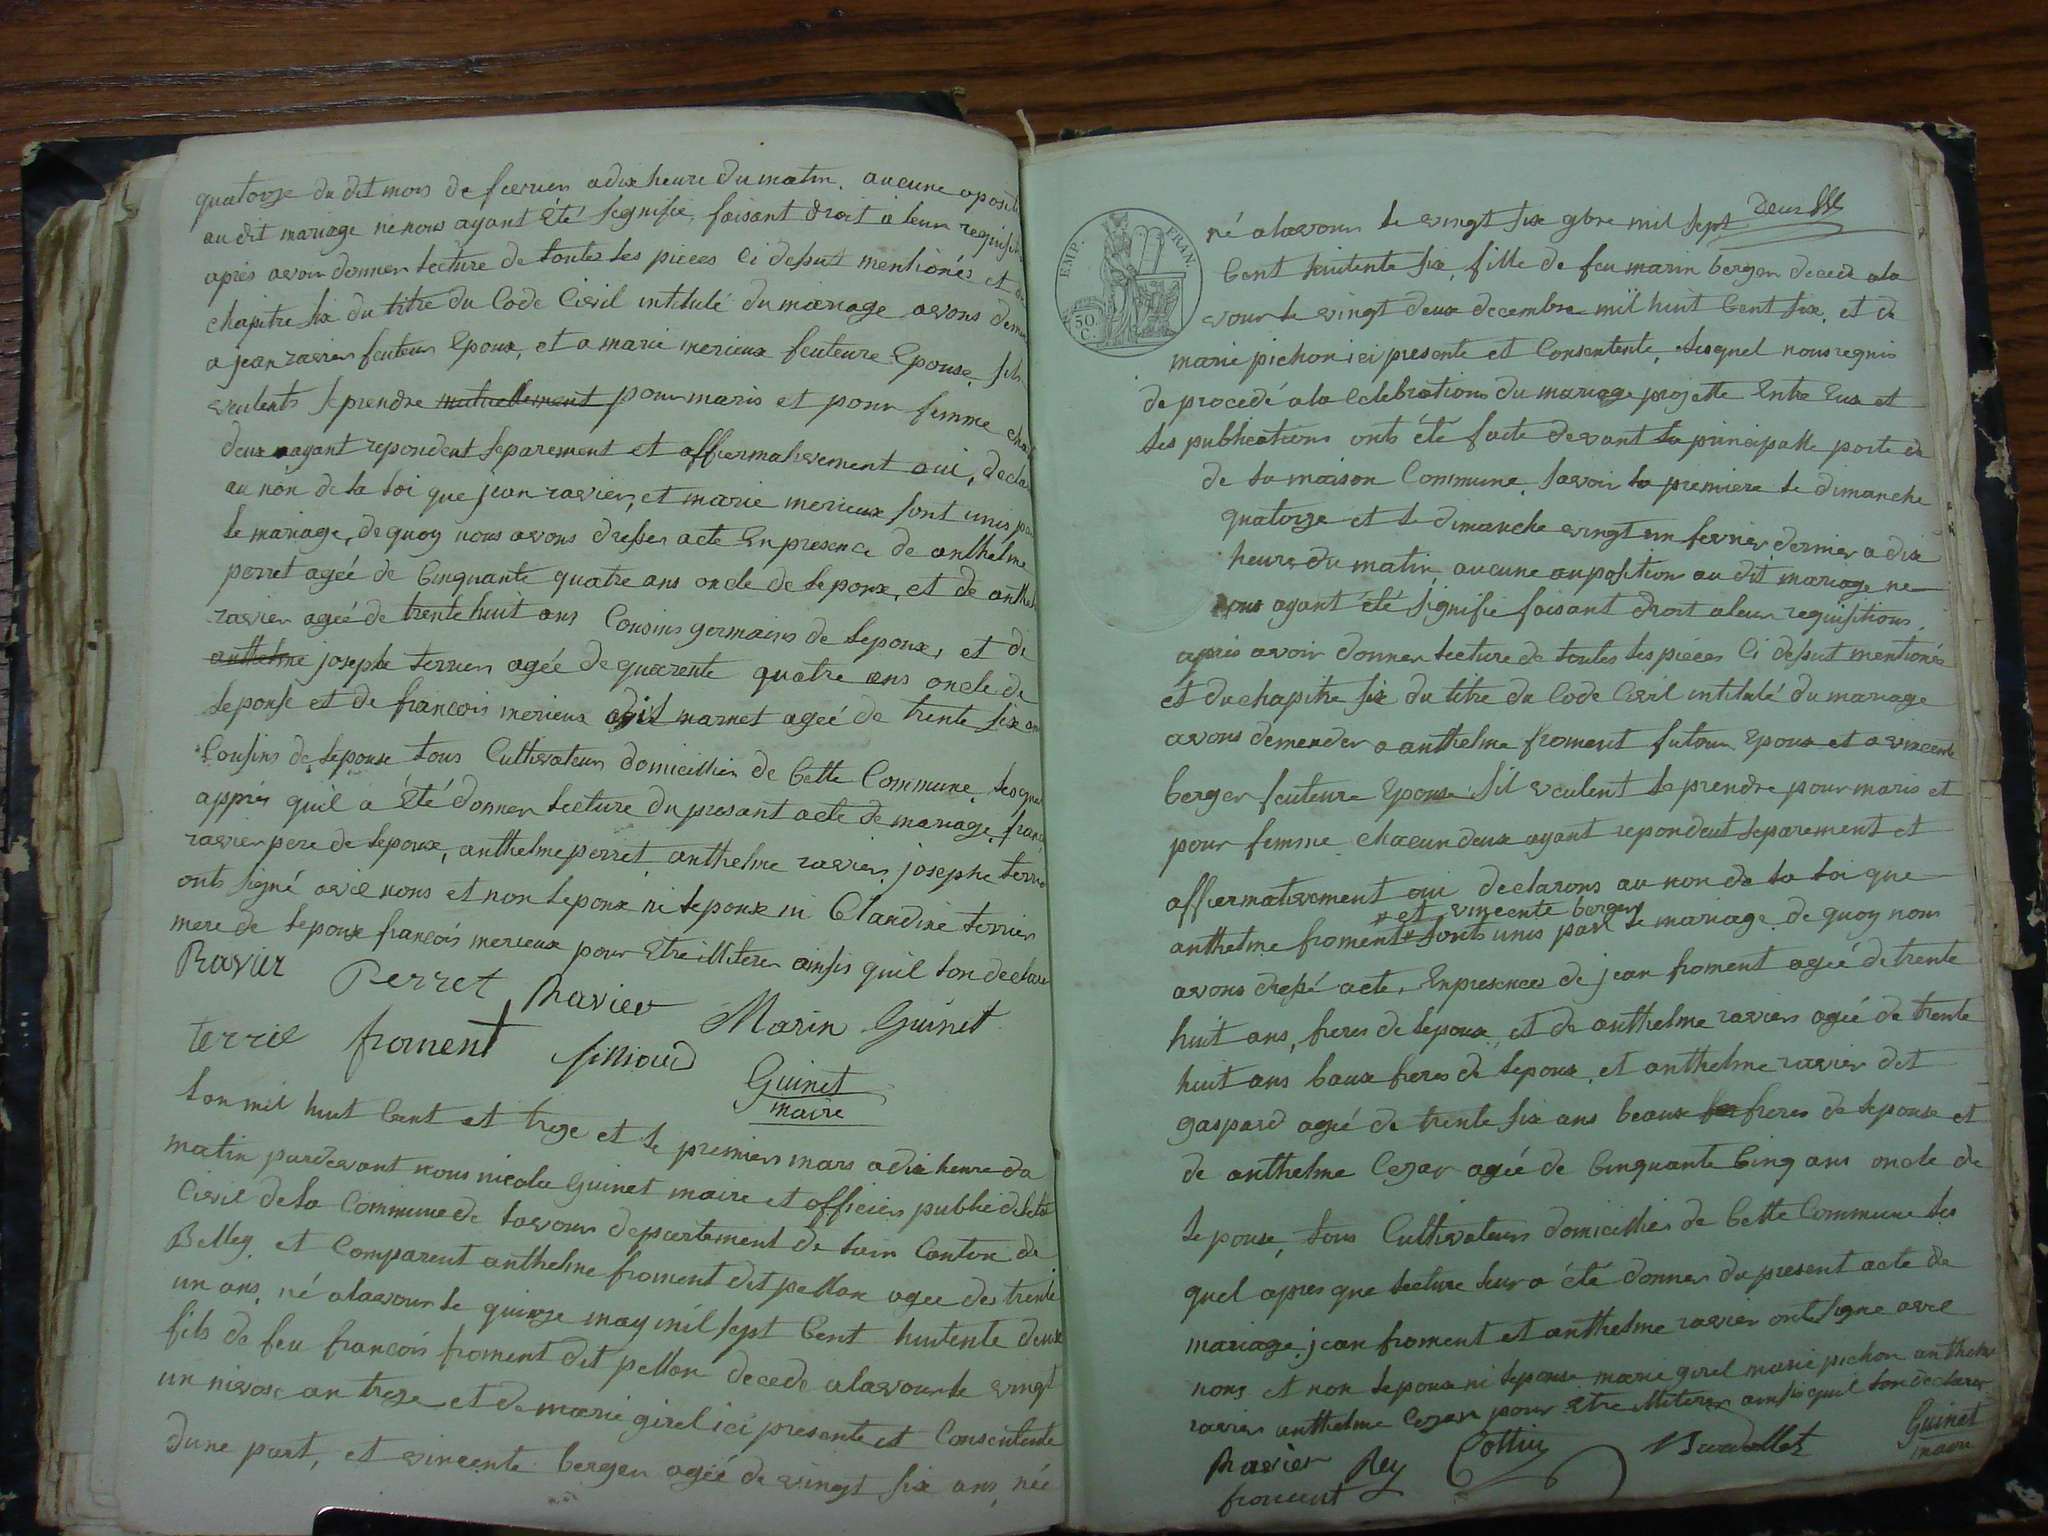 quatorze du dit mois de fevrier a dix heure du matin. aucune oposit
au dit mariage ne nous ayant été signifie, faisant droit a leur requisit
apres avoir donner lecture de toutes les pieces ci desut mentionés et
chapitre six du titre du Code Civil intitulé du mariage avons deman
a jean ravier feuteur Epoux, et a marie merieux feuteure Epouse, sils
veulents se prendre mutuellement pour maris et pour femme cha
deux ayant repondent separement et affiermativement oui, declar
au non de la loi que jean ravier, et marie merieux sont unis par
le mariage, de quoy nous avons dresser acte En presence de anthelme
perret ageé de Cinquante quatre ans oncle de lepoux, et de anthel
ravier ageé de trente huit ans Cousins germains de lepoux, et de
anthelme joseph terrier ageé de quarente quatre ans oncle de
lepouse et de francois merieux dit marnet ageé de trente six ans
Cousins de lepouse tous Cultivateurs domicillier de Cette Commune, lesquel
apprés quil a Eté donner lecture du presant acte de mariage, franc
ravier pere de lepoux, anthelme perret, anthelme ravier, josephe terrie
onts signé avec nous et non lepoux ni lepouse ni Claudine terrier
mere de lepoux francois merieux pour Etre illiterer ainsis quil lon declare
Ravier Perret Ravier Marin Guinet
terrie froment silliand Guinet
maire
Lan mil huit Cent et treze et le premier mars a dix heure du
matin pardevant nous nicolas Guinet maire et officier public de letat
Civil de la Commune de lavours departement de lain Canton de
Belley, et Comparent anthelme froment dit pellon agee des trente
un ans, né a lavour le quinze may mil sept Cent huitente deux
fils de feu francois froment dit pellon decede a lavour le vingt
un nivose an treze et de marie girel ici presente et Consentente
dune part, et vincente berger ageé de vingt six ans, née
EMP. FRAN.
50 C.
deux
né a lavour le vingt six 9bre mil sept
Cent huitente six, fille de feu marin berger decede a la
vour le vingt deux decembre mil huit Cent six, et de
marie pichon ici presente et Consentente, lesquel nous requis
de procedé a la Celebrations du mariage projette Entre Eux et
les publications onts été faite devant la principalle porte de
de la maison Commune, savoir la premiere le dimanche
quatorze et le dimanche vingt un fevrier dernier a dix
heure du matin, aucune auposition au dit mariage ne
nous ayant été signifie faisant droit a leur requisitions.
apres avoir donner lecture de toutes les pieces Ci desut mentionés
et du chapitre six du titre du Code Civil intitulé du mariage
avons demender a anthelme froment futeur Epoux et a vincente
berger feuteure Epouse sil veulent se prendre pour maris et
pour femme chacun deux ayant repondent separement et
affiermativement oui declarons au non de la loi que
et vincente berger
anthelme froment sonts unis par le mariage de quoy nous
avons dressé acte. En presence de jean froment ageé de trente
huit ans, freres de lepoux, et de anthelme ravier ageé de trente
huit ans baux freres de lepoux, et anthelme ravier dit
gaspard ageé de trente six ans beaux freres de lepouse et
de anthelme Cezar ageé de Cinquante Cinq ans oncle de
lepouse, tous Cultivateurs domicillier de Cette Commune les
quel apres que lecture leur a été donner du present acte de
mariage, jean froment et anthelme ravier onts signe avec
nous et non lepoux ni lepouse marie girel marie pichon anthelme
ravier anthelme Cezar pour Etre illiterer ainsi quil lon declarer
Ravier Rey Cottin Guinet
froment maire